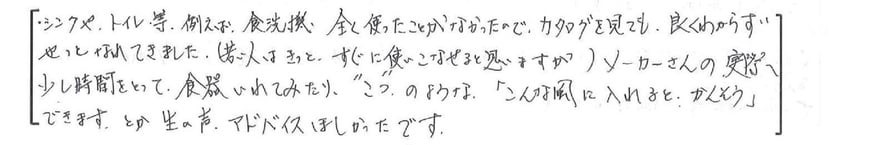 ・シンクや、トイレ等、例えば、食洗機、全く使ったことがなかったので、カタログを見ても、良くわからず
やっとなれてきました。(若い人はきっと、すぐに使いこなせると思いますが)メーカーさんの実際、
少し時間をとって、食器いれてみたり、"こつ"のような、「こんな風に入れると、かんそう」
できます、とか生の声、アドバイスほしかったです。